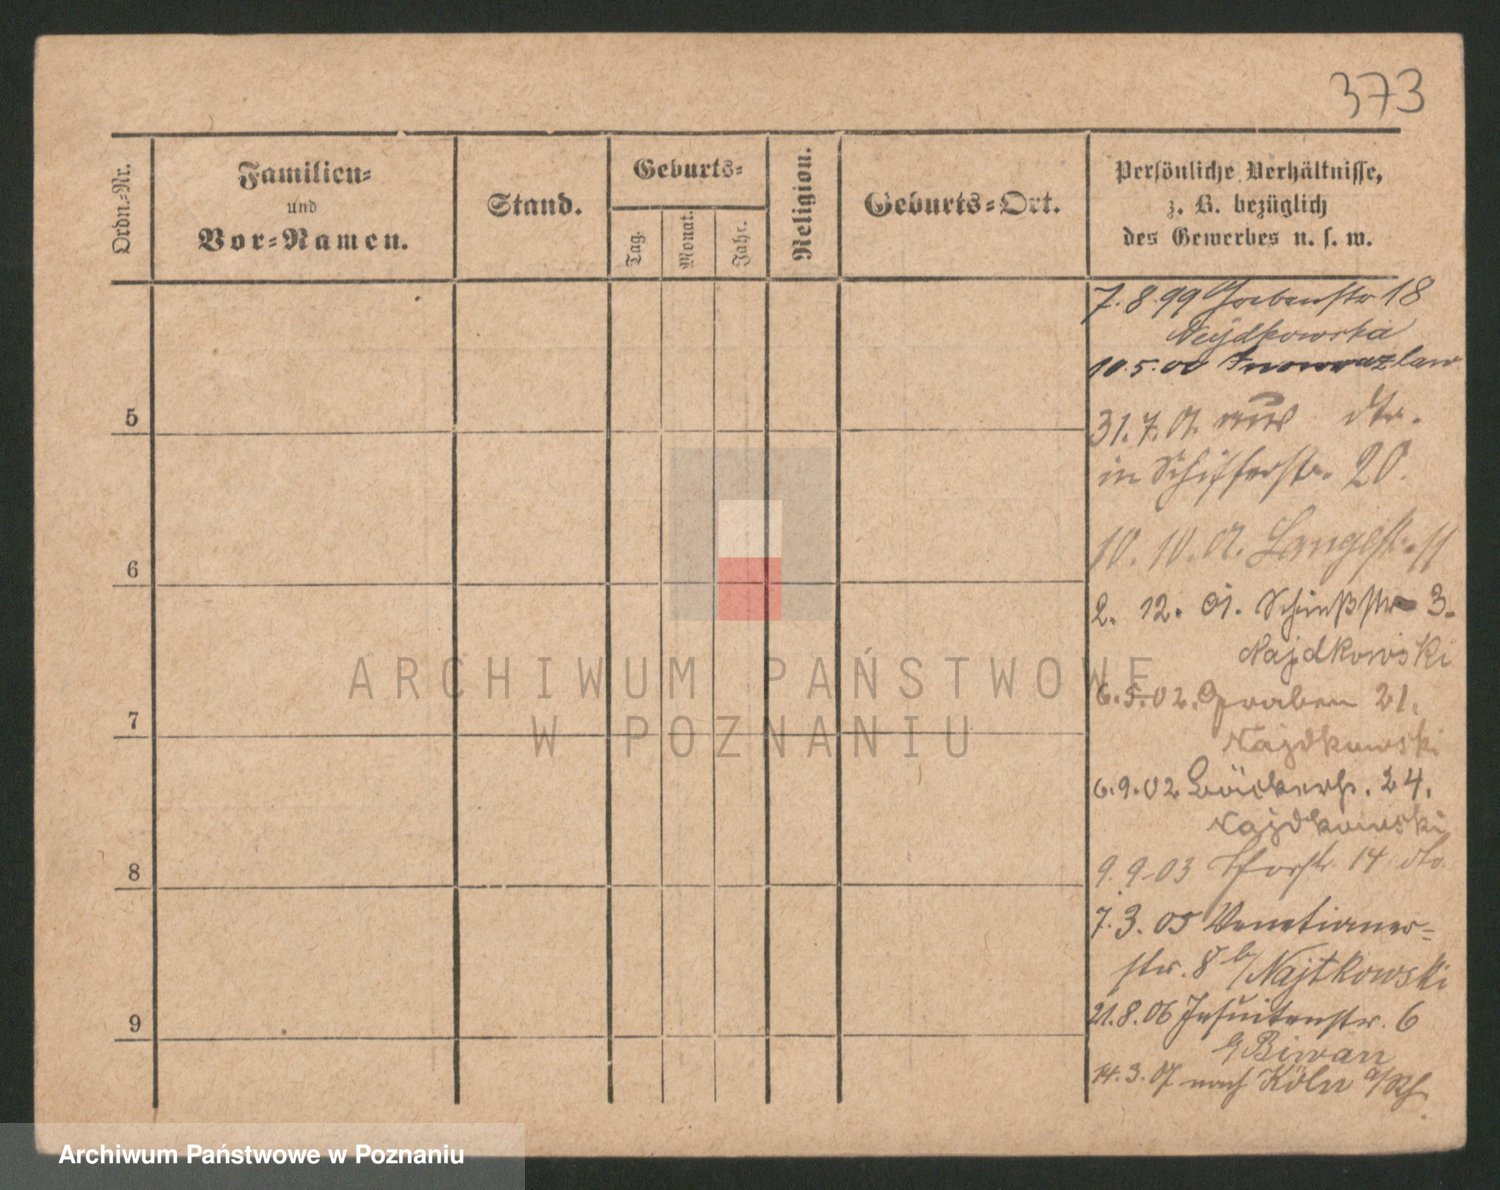 373
Ordn.-Nr.
Familien-
und
Vor-Namen.
Stand.
Geburts-
Tag.
Monat.
Jahr.
Religion.
Geburts-Ort.
Persönliche Verhältnisse,
z. B. bezüglich
des Gewerbes u. s. w.
7.8.99 18
Najdkowska
10.5.00 Inowrazlaw
5
31.7.01.
in Schifferstr. 20.
10. 10. 01. Langestr.
6
2. 12. 01. Schießstr 3.
Najdkowski
6.5.02. Graben 21.
7
Najdkowski
6.9.02 Bäckerstr. 24.
Najdkowski
9.9.03 Thorstr. 14 dto.
8
7.3.05 Venetianer-
str. 8 b/ Najtkowski
21.8.06 Jesuitenstr. 6
9
b/ Biwan
14.3.07 nach Köln a/Rh.
ARCHIWUM PAŃSTWOWE
W POZNANIU
Archiwum Państwowe w Poznaniu